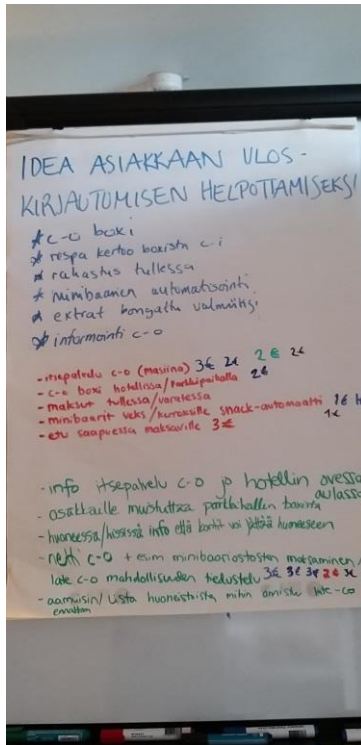 IDEA ASIAKKAAN ULOS-
KIRJAUTUMISEN HELPOTTAMISEKSI
* c-o boxi
* respa kertoo boxista c-i
* rahastus tullessa
* minibaarien automatisointi
* extrat bongattu valmiiksi
* informointi c-o
- itsepalvelu c-o (masiina) 3€ 2€ 2€ 2€
- c-o boxi hotellissa/parkkipaikalla 2€
- maksut tullessa/varatessa
- minibaarit veks/kerroksille snack-automaatti 1€
1€
- etu saapuessa maksaville 3€
- info itsepalvelu c-o jo hotellin ovessa
aulassa
- asiakkaille muistuttaa parkkihallen
- huoneessa/hississä info että kortit voi jättää huoneeseen
- netti c-o + esim minibaariostosten maksaminen,
late c-o mahdollisuuden tiedustelu 3€ 3€ 3€ 2€ 3€
- aamuisin lista huoneistoista mihin late-co